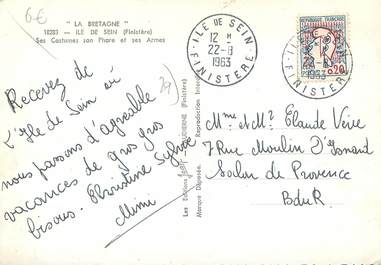 6€
"LA BRETAGNE"
10283 — ILE DE SEIN (Finistère)
Ses Costumes son Phare et ses Armes
29
Recevez de
l'Ile de Sein où
nous passons d'agréable
vacances de gros gros
bisous. Christine Sylvie
Mimi
Les Editions
(Finistère)
Marque Déposée.
Reproduction
ILE DE SEIN
12 H
22-8
1963
FINISTERE
REPUBLIQUE FRANCAISE
0,20
22-8
1963
FINISTERE
Mme et Mr Claude Vève
7 Rue Moulin D'Isnard
Salon de Provence
BduR